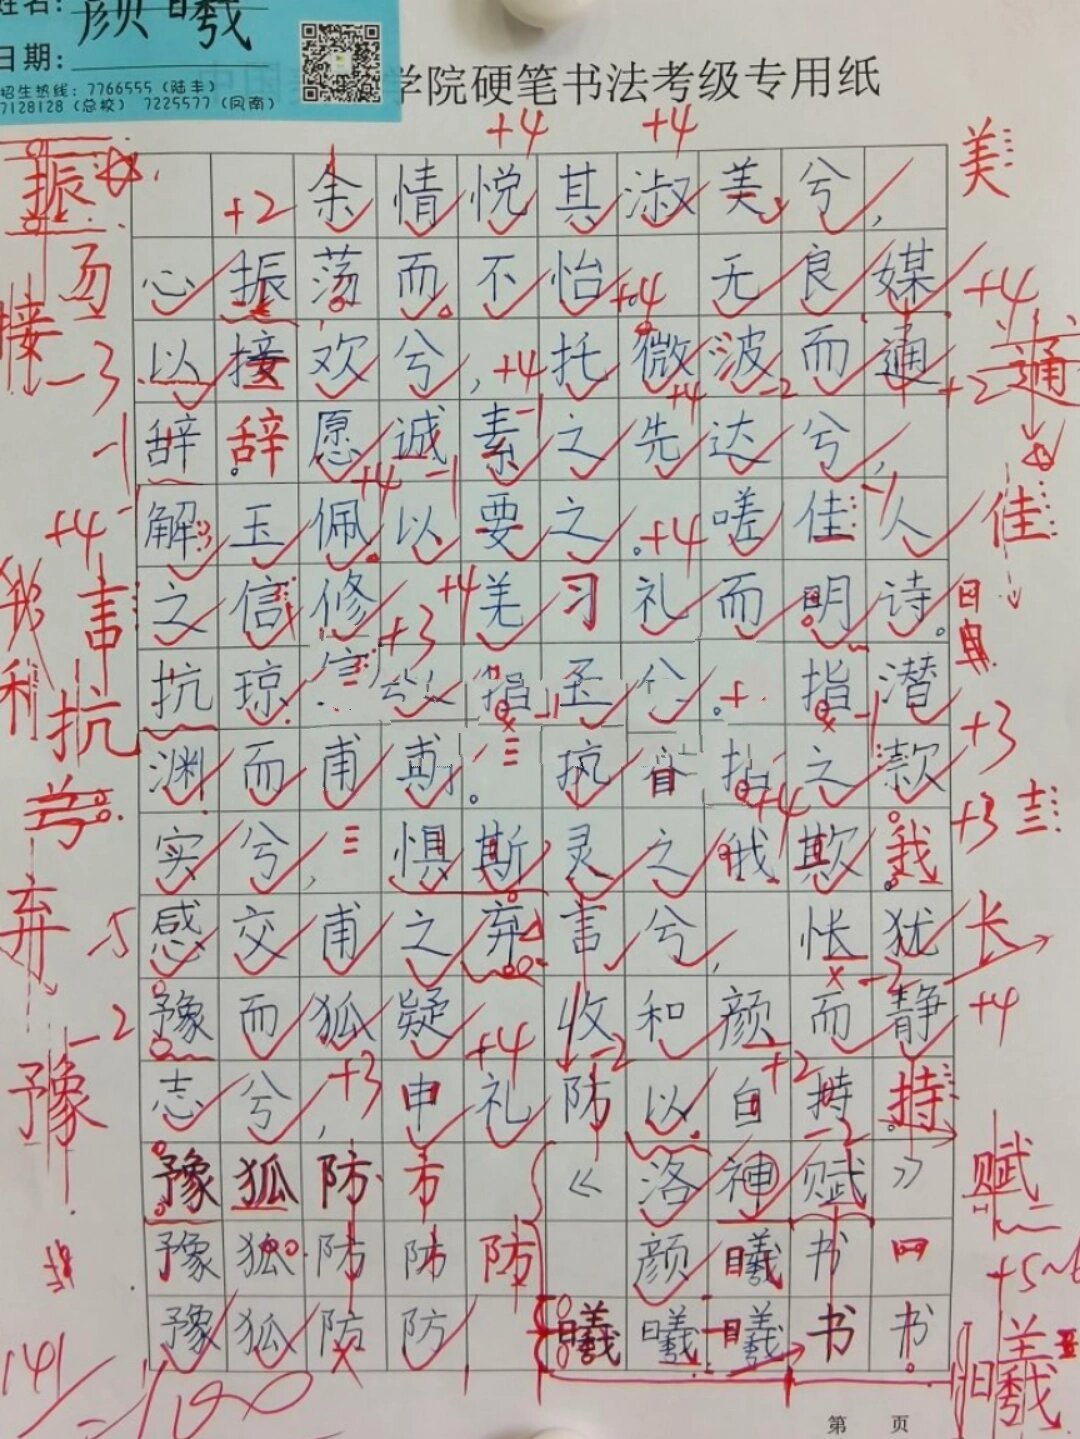 姓名: 颜曦
日期:
招生热线: 7766555 (陆丰)
7128128 (总校) 7225577 (凤南)
学院硬笔书法考级专用纸
+4 +4
振 美
+2 余情悦其淑美兮,
心振荡而不怡 +4 无良媒 +4
以接欢兮, +4 托微波而通 +2 通
接 -3
-1 辞辞愿诚素之先达兮,
+4 解玉佩以要之。+4 嗟佳人 佳
言 之信修 +3 +4 羌习礼而明诗。
利 抗 抗琼 以 指玉兮。+ 指潜 +3
渊而甫甫。 执 指之款
实兮, 惧斯灵之 欺我 +3
弃 感交甫之弃言兮, 怅犹 长
-2 豫而狐疑 +4 收和颜而静 +4
豫 志兮, +3 申礼防以自持 +2 持
豫狐防方 《洛神赋》 赋
豫狐防防防 颜曦书
豫狐防防 曦曦曦书书 曦
141
100
第 页